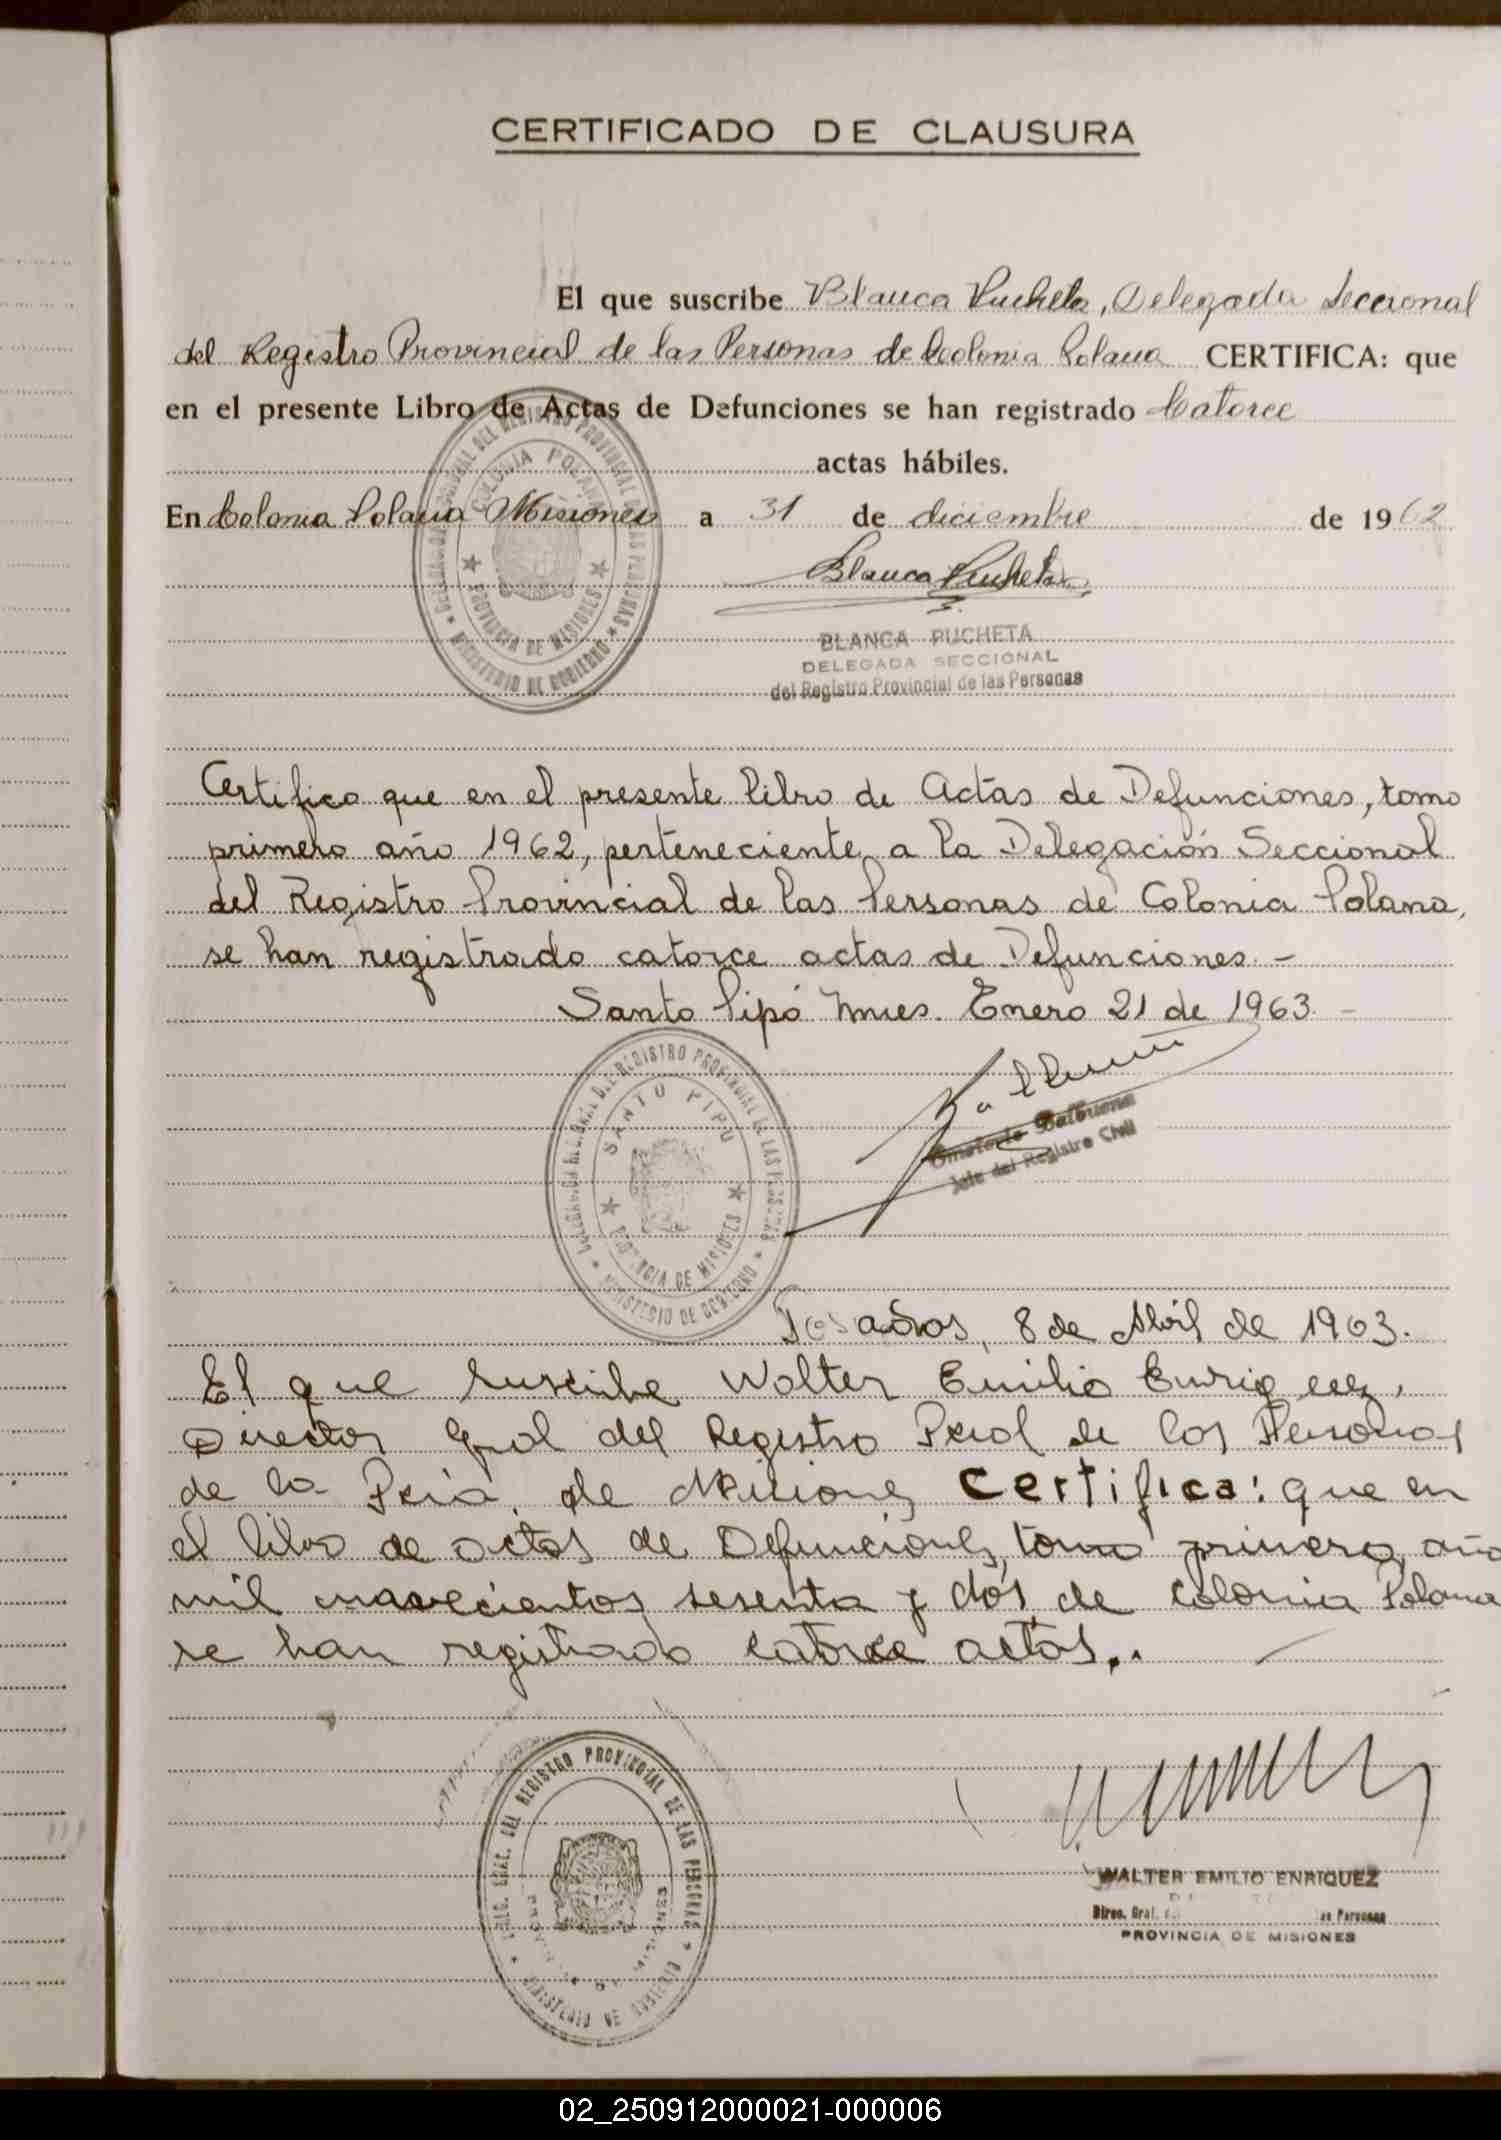 CERTIFICADO DE CLAUSURA
El que suscribe Blanca Pucheta, Delegada Seccional
del Registro Provincial de las Personas de Colonia Polana CERTIFICA: que
en el presente Libro de Actas de Defunciones se han registrado Catorce
actas hábiles.
En Colonia Polana Misiones a 31 de diciembre de 1962
Blanca Pucheta
BLANCA PUCHETA
DELEGADA SECCIONAL
del Registro Provincial de las Personas
DELEGACION SECCIONAL DEL REGISTRO PROVINCIAL DE LAS PERSONAS
COLONIA POLANA
PROVINCIA DE MISIONES
MINISTERIO DE GOBIERNO
Certifico que en el presente libro de Actas de Defunciones, tomo
primero año 1962, perteneciente a la Delegación Seccional
del Registro Provincial de las Personas de Colonia Polana,
se han registrado catorce actas de Defunciones. -
Santo Pipó Mnes. Enero 21 de 1963. -
Balbuena
Jefe del Registro Civil
DELEGACION REGIONAL DEL REGISTRO PROVINCIAL DE LAS PERSONAS
SANTO PIPO
PROVINCIA DE MISIONES
MINISTERIO DE GOBIERNO
Posadas, 8 de Abril de 1963.
El que suscribe Walter Emilio Enriquez,
Director Gral del Registro Pcial de las Personas
de la Pcia. de Misiones Certifica: que en
el libro de actas de Defunciones, tomo primero, año
mil novecientos sesenta y dos de Colonia Polana
se han registrado catorce actas..
DIREC. GRAL. DEL REGISTRO PROVINCIAL DE LAS PERSONAS
PROVINCIA DE MISIONES
MINISTERIO DE GOBIERNO
WALTER EMILIO ENRIQUEZ
Direc. Gral. Personas
PROVINCIA DE MISIONES
02_250912000021-000006